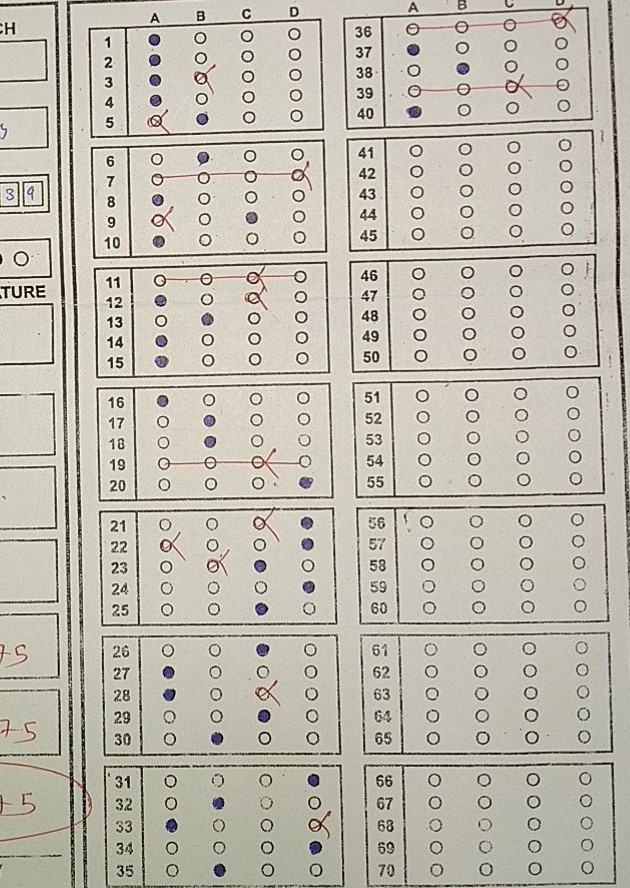 CH
A B C D
1
2
3
4
5
6
7
8
9
10
11
12
13
14
15
16
17
18
19
20
21
22
23
24
25
26
27
28
29
30
31
32
33
34
35
A B C D
36
37
38
39
40
41
42
43
44
45
46
47
48
49
50
51
52
53
54
55
56
57
58
59
60
61
62
63
64
65
66
67
68
69
70
3 9
TURE
75
75
75